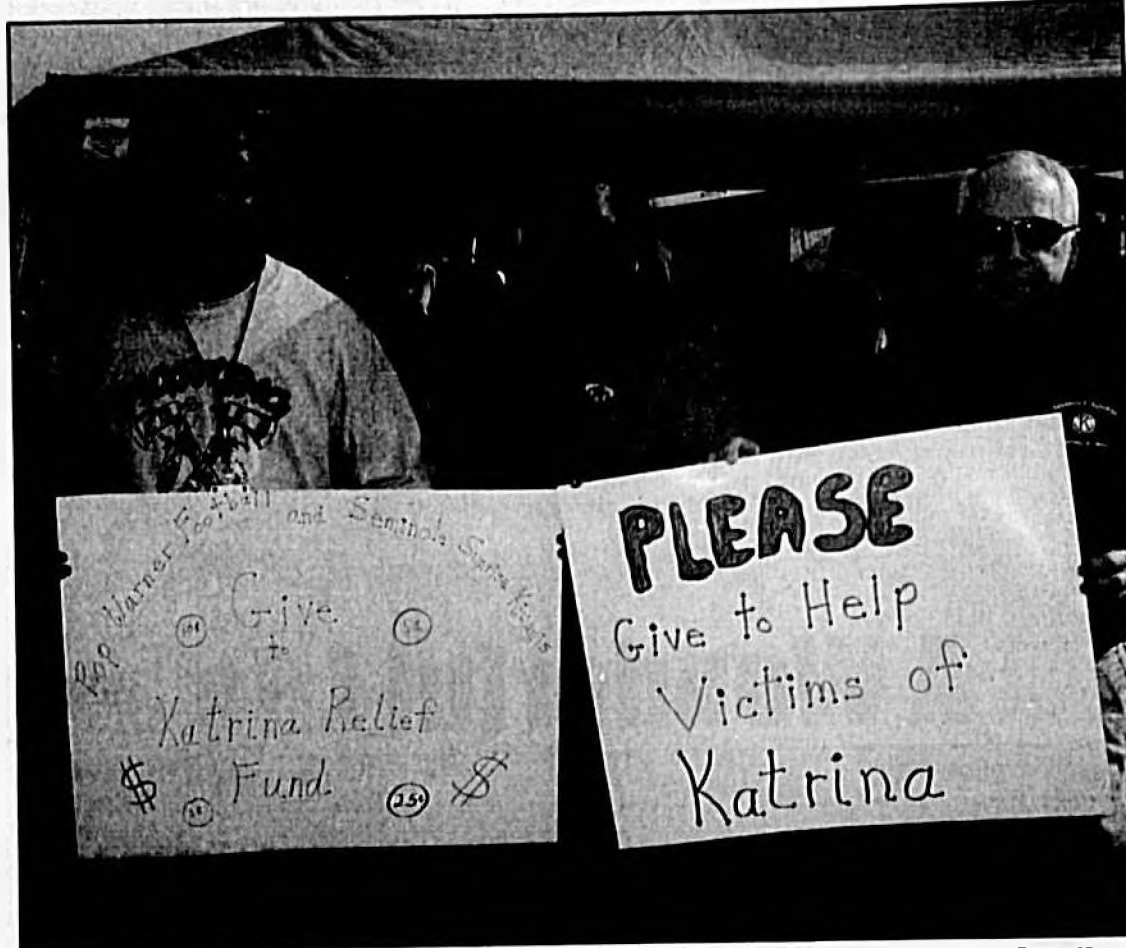 Pop Warner Football and Seminole Sunrise Kiwanis
Give
10¢
5¢
to
Katrina Relief
Fund
$
$
25¢
PLEASE
Give to Help
Victims of
Katrina
K